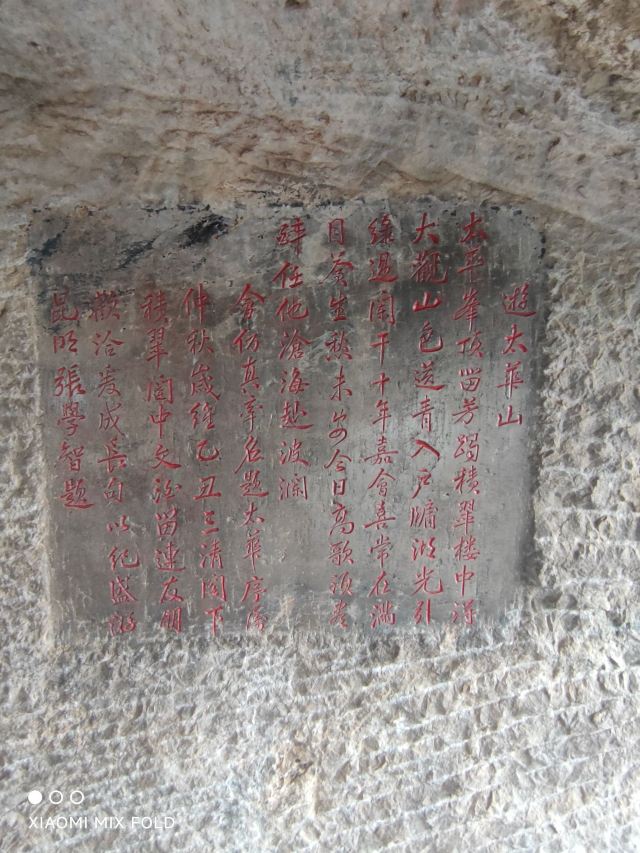 遊太華山
太平峯頂留芳躅積翠樓中得
大觀山色送青入戶牖湖光引
綠過闌干十年嘉會喜常在滿
目蒼生愁未安今日高歌須盡
醉任他滄海起波瀾
余仿真率名題太華序屬
仲秋歲維乙丑三清閣下
積翠閣中文酒留連友朋
歡洽爰成長句以紀盛游
昆明張學智題
XIAOMI MIX FOLD